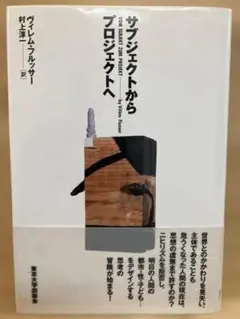 サブジェクトから
プロジェクトへ
VOM SUBJEKT ZUM PROJEKT
by Vilém Flusser
ヴィレム・フルッサー
村上淳一[訳]
世界とのかかわりを見失い、
主体であることも
危うくなった人間の現在は、
思想の虚無まで許すのか?
ニヒリズムを拒否し、
明日の人間の
都市・性・子ども…
をデザインする
思考の
冒険が始まる!
東京大学出版会